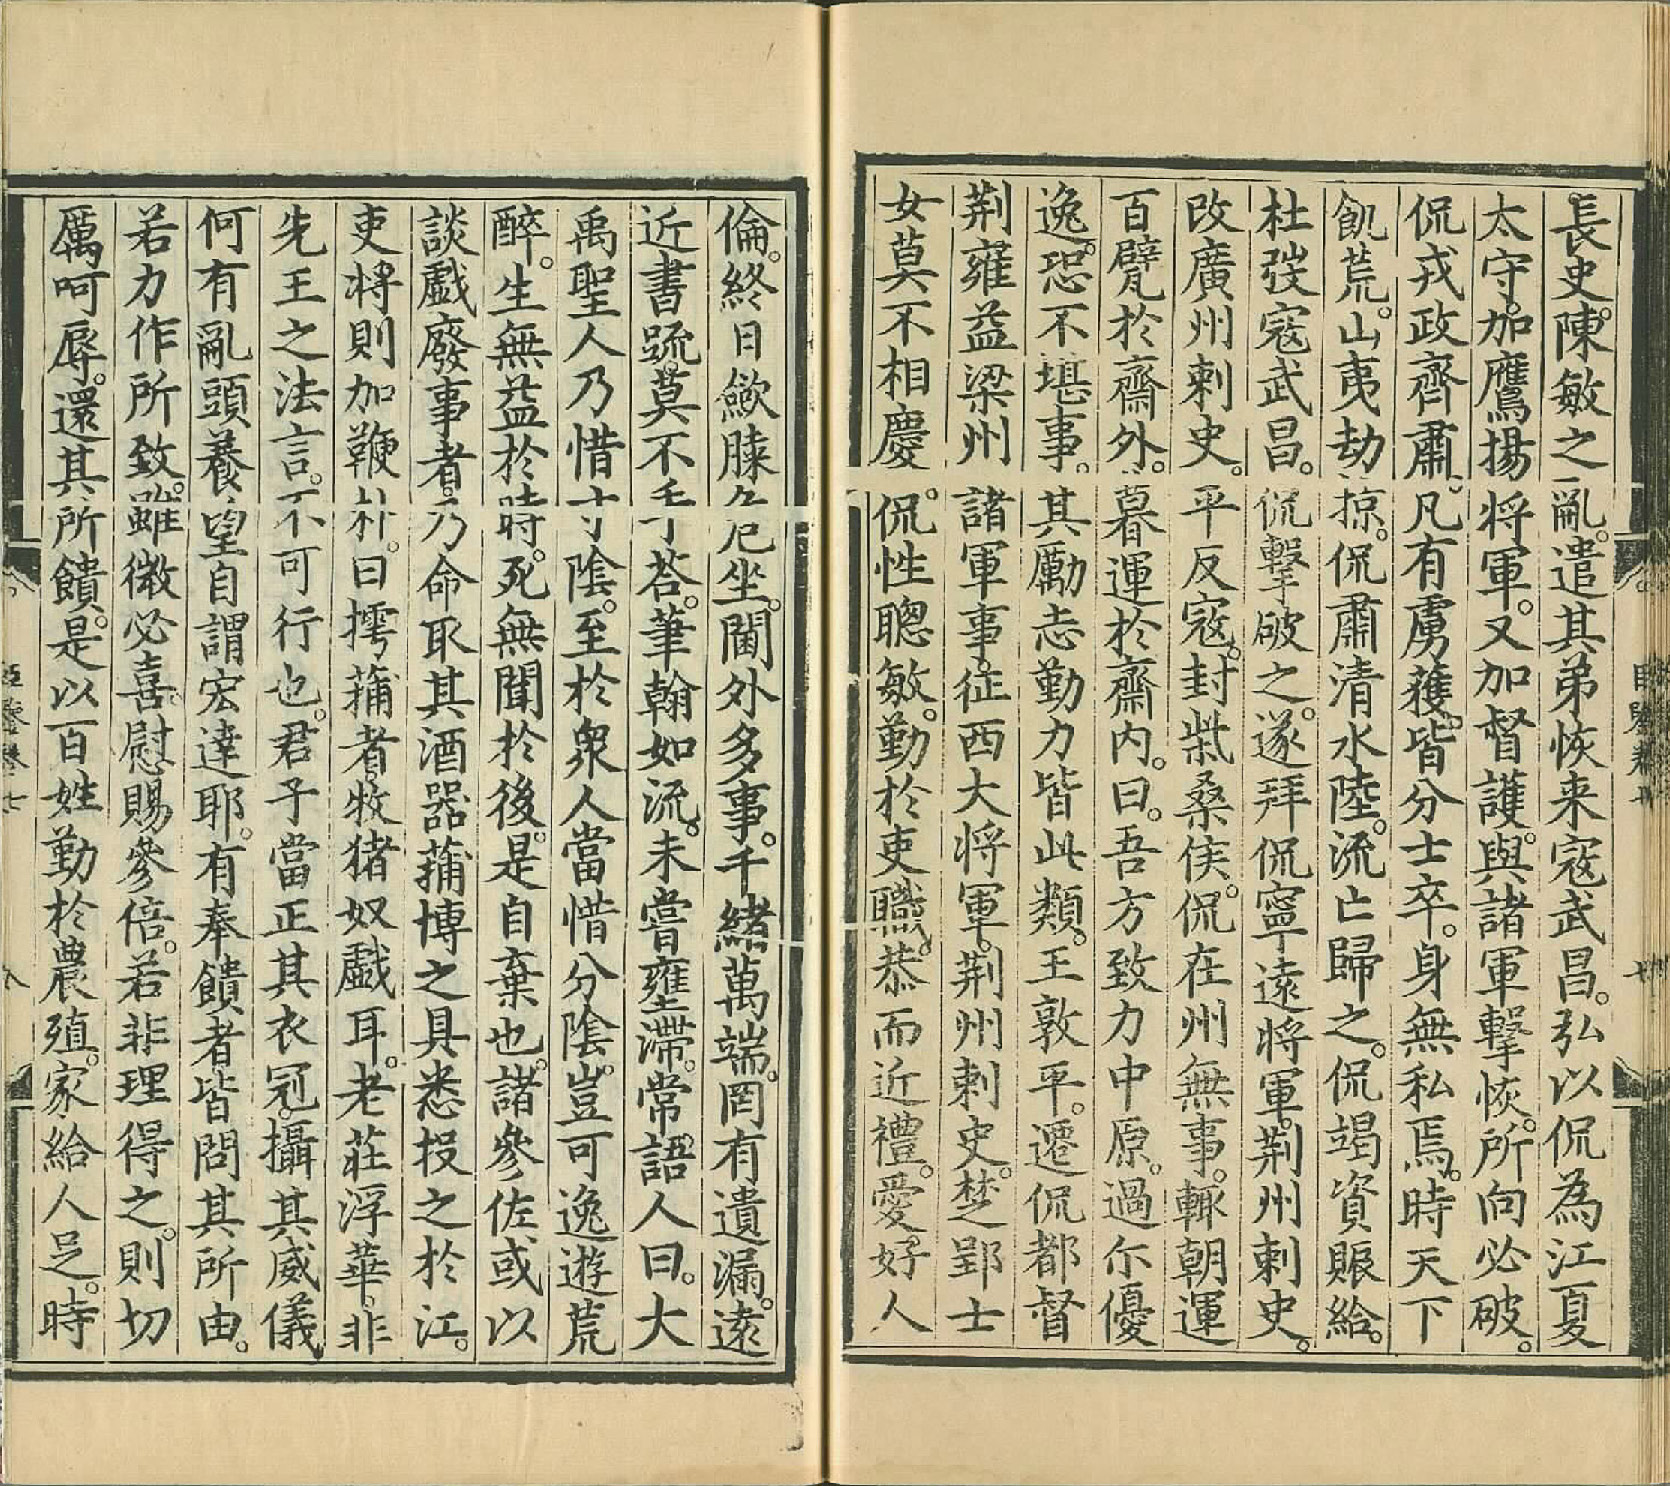 長史。陳敏之亂。遣其弟恢来寇武昌。弘以侃為江夏
太守。加鷹揚将軍。又加督護。與諸軍擊恢。所向必破。
侃戎政齊肅。凡有虜獲。皆分士卒。身無私焉。時天下
飢荒。山夷劫掠。侃肅清水陸。流亡歸之。侃竭資賑給。
杜弢寇武昌。侃擊破之。遂拜侃寧遠将軍。荆州刺史。
改廣州刺史。平反寇。封柴桑侯。侃在州無事。輙朝運
百甓於齋外。暮運於齋内。曰。吾方致力中原。過尓優
逸。恐不堪事。其勵志勤力皆此類。王敦平。遷侃都督
荆雍益梁州諸軍事。征西大将軍。荆州刺史。楚郢士
女莫不相慶。侃性聰敏。勤於吏職。恭而近禮。愛好人
倫。終日歛膝危坐。閫外多事。千緒萬端。罔有遺漏。遠
近書疏。莫不手荅。筆翰如流。未嘗壅滯。常語人曰。大
禹聖人乃惜寸陰。至於衆人當惜分陰。豈可逸遊荒
醉。生無益於時。死無聞於後。是自棄也。諸參佐或以
談戲廢事者。乃命取其酒器蒱博之具悉投之於江。
吏将則加鞭朴。曰摴蒱者。牧猪奴戲耳。老莊浮華。非
先王之法言。不可行也。君子當正其衣冠。攝其威儀。
何有亂頭養望自謂宏達耶。有奉饋者皆問其所由。
若力作所致。雖微必喜。慰賜參倍。若非理得之。則切
厲呵辱。還其所饋。是以百姓勤於農殖。家給人足。時